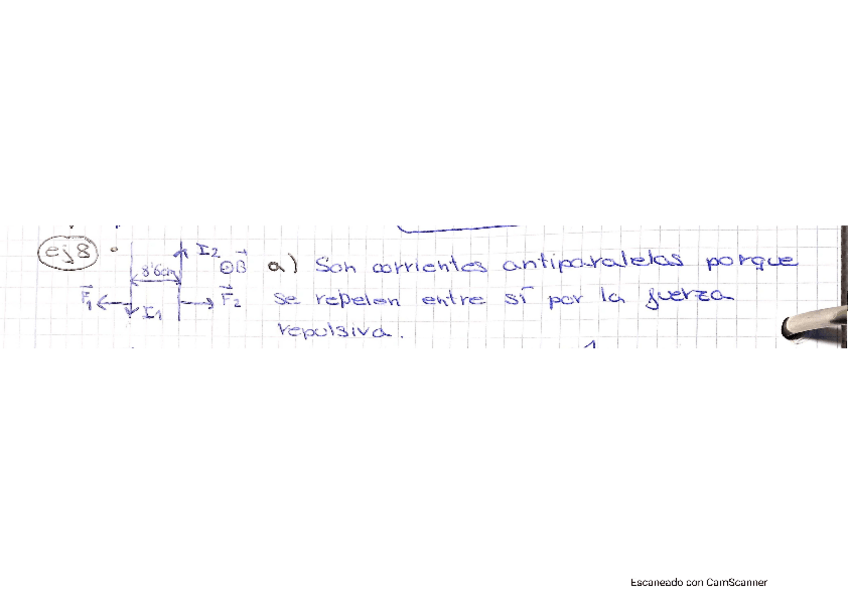 ej8
I2
⊙B
8'6cm
F1
I1
F2
a) Son corrientes antiparalelas porque
se repelen entre sí por la fuerza
repulsiva.
Escaneado con CamScanner